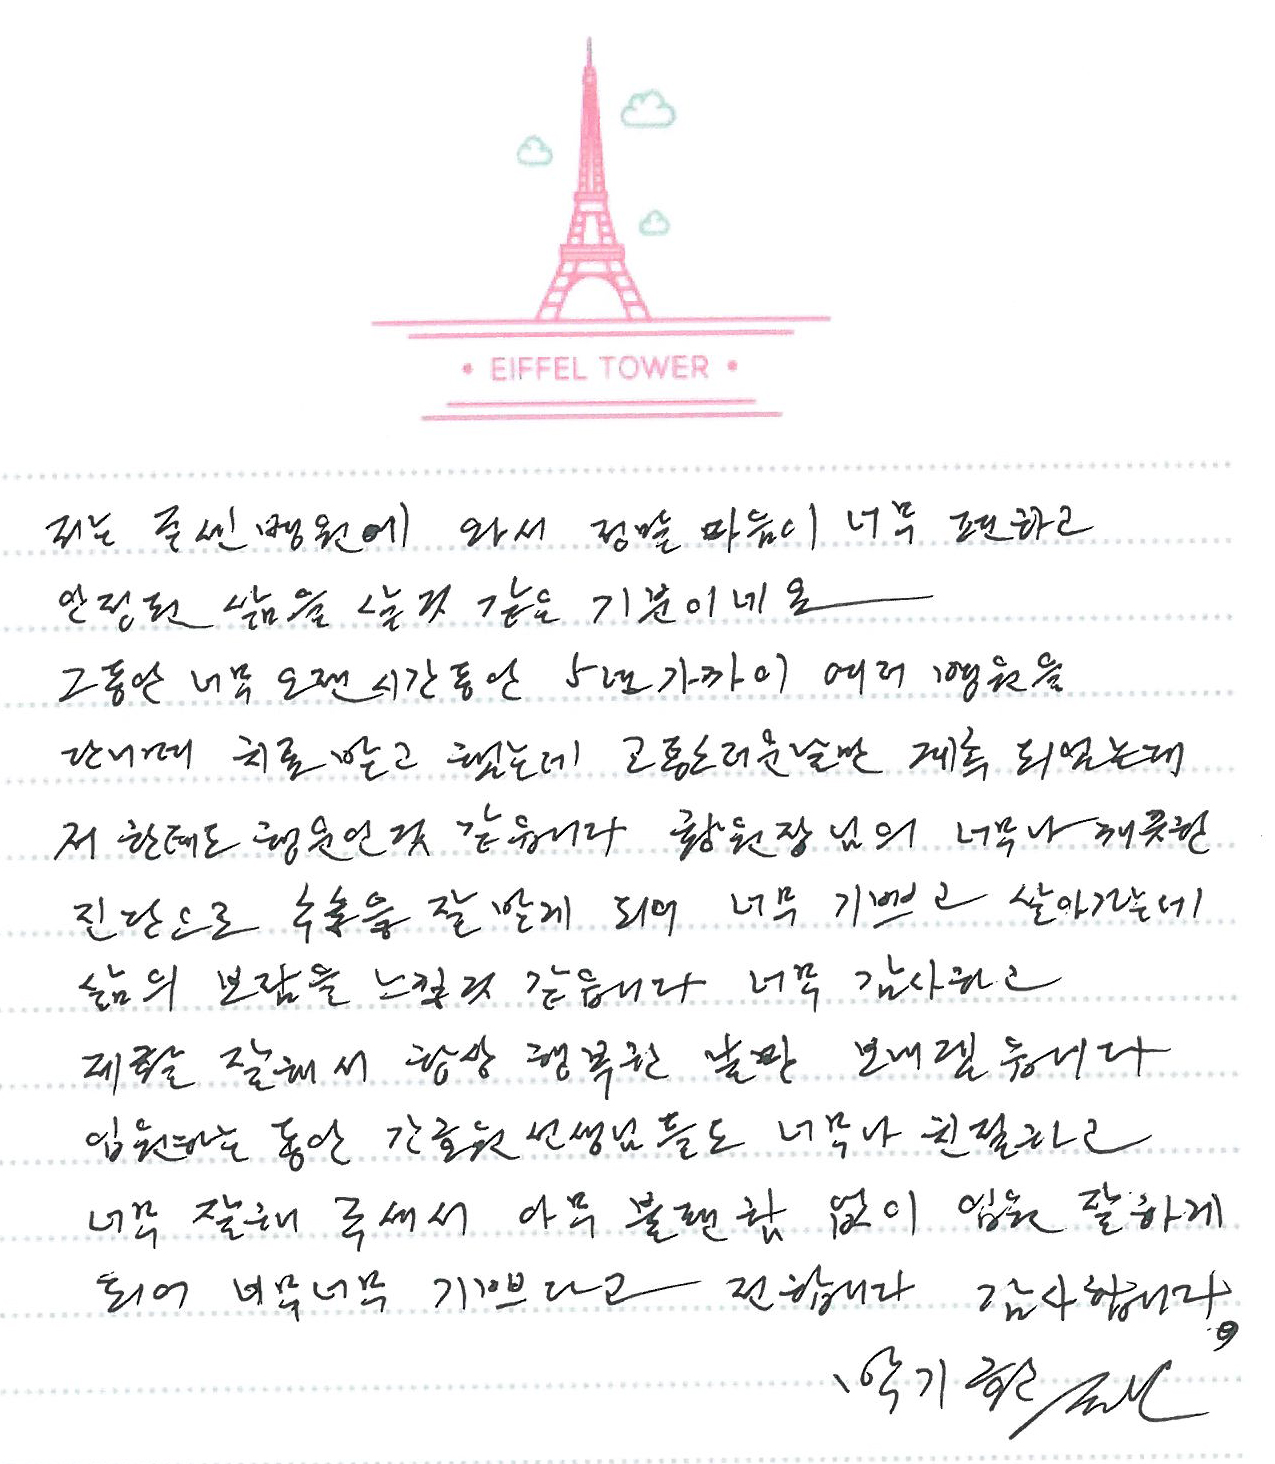 • EIFFEL TOWER •
저는 굳센병원에 와서 정말 마음이 너무 편하고
안정된 삶을 살것 같은 기분이네요
그동안 너무 오랜시간동안 5년가까이 여러 병원을
다니며 치료 받고 했는데 고통스러운날만 계속 되었는데
저 한테도 행운인것 같습니다 황원장님의 너무나 깨끗한
진단으로 수술을 잘 받게 되어 너무 기쁘고 살아가는데
삶의 보람을 느낄것 같습니다 너무 감사하고
재활 잘해서 항상 행복한 날만 보내겠습니다
입원하는 동안 간호원선생님들도 너무나 친절하고
너무 잘해 주셔서 아무 불편함 없이 입원 잘하게
되어 너무너무 기쁘다고 전합니다 감사합니다
박기